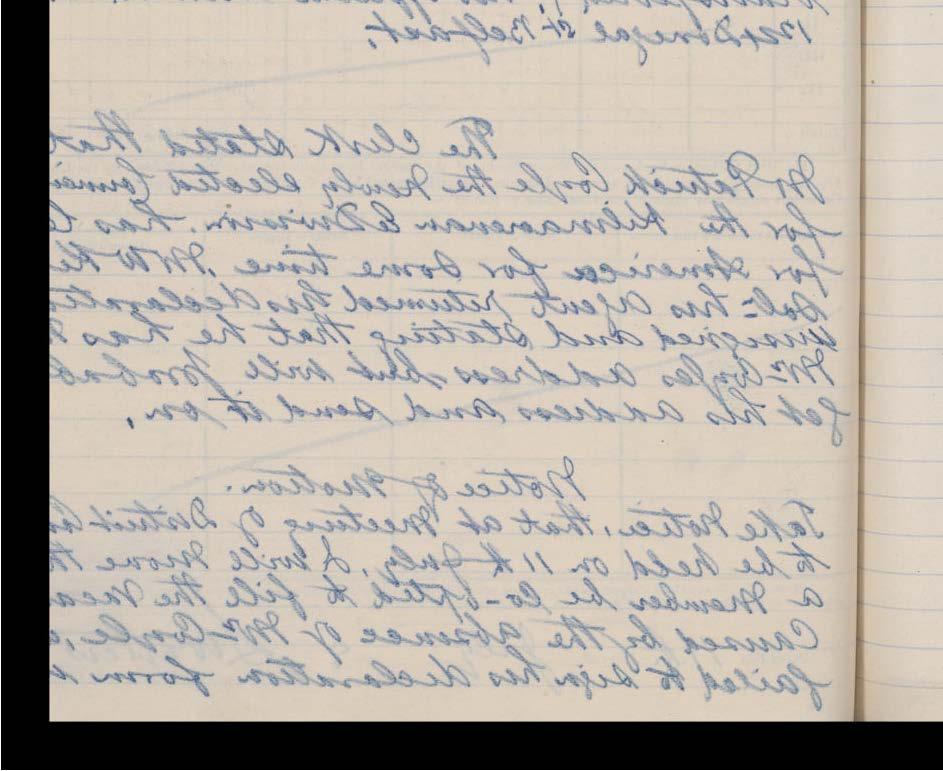 Donegal St Belfast.
The Clerk states that
Mr Patrick Coyle the newly elected Counci
for the Kilmacrenan E Division, has le
for America for some time. Mr W Ke
Sol:- his agent returned his declaratio
unsigned and stating that he has n
Mr Coyles address but will probab
get his address and send it on.
Notice of Motion.
Take Notice, that at Meeting of District Co
to be held on 11th July, I will move th
a Member be Co-opted to fill the vaca
caused by the absence of Mr Coyle,
failed to sign his declaration form